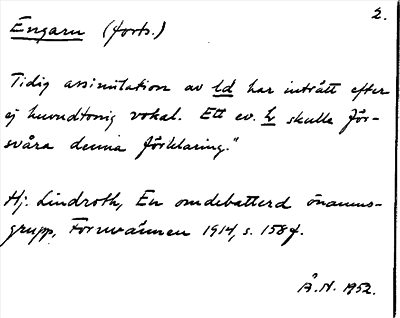 2.
Engarn (forts.)
Tidig assimilation av ld har inträtt efter
ej huvudtonig vokal. Ett ev. h skulle för-
svåra denna förklaring."
Hj. Lindroth, En omdebatterd önamns-
grupp, Fornvännen 1914, s. 158f.
Å.N. 1952.